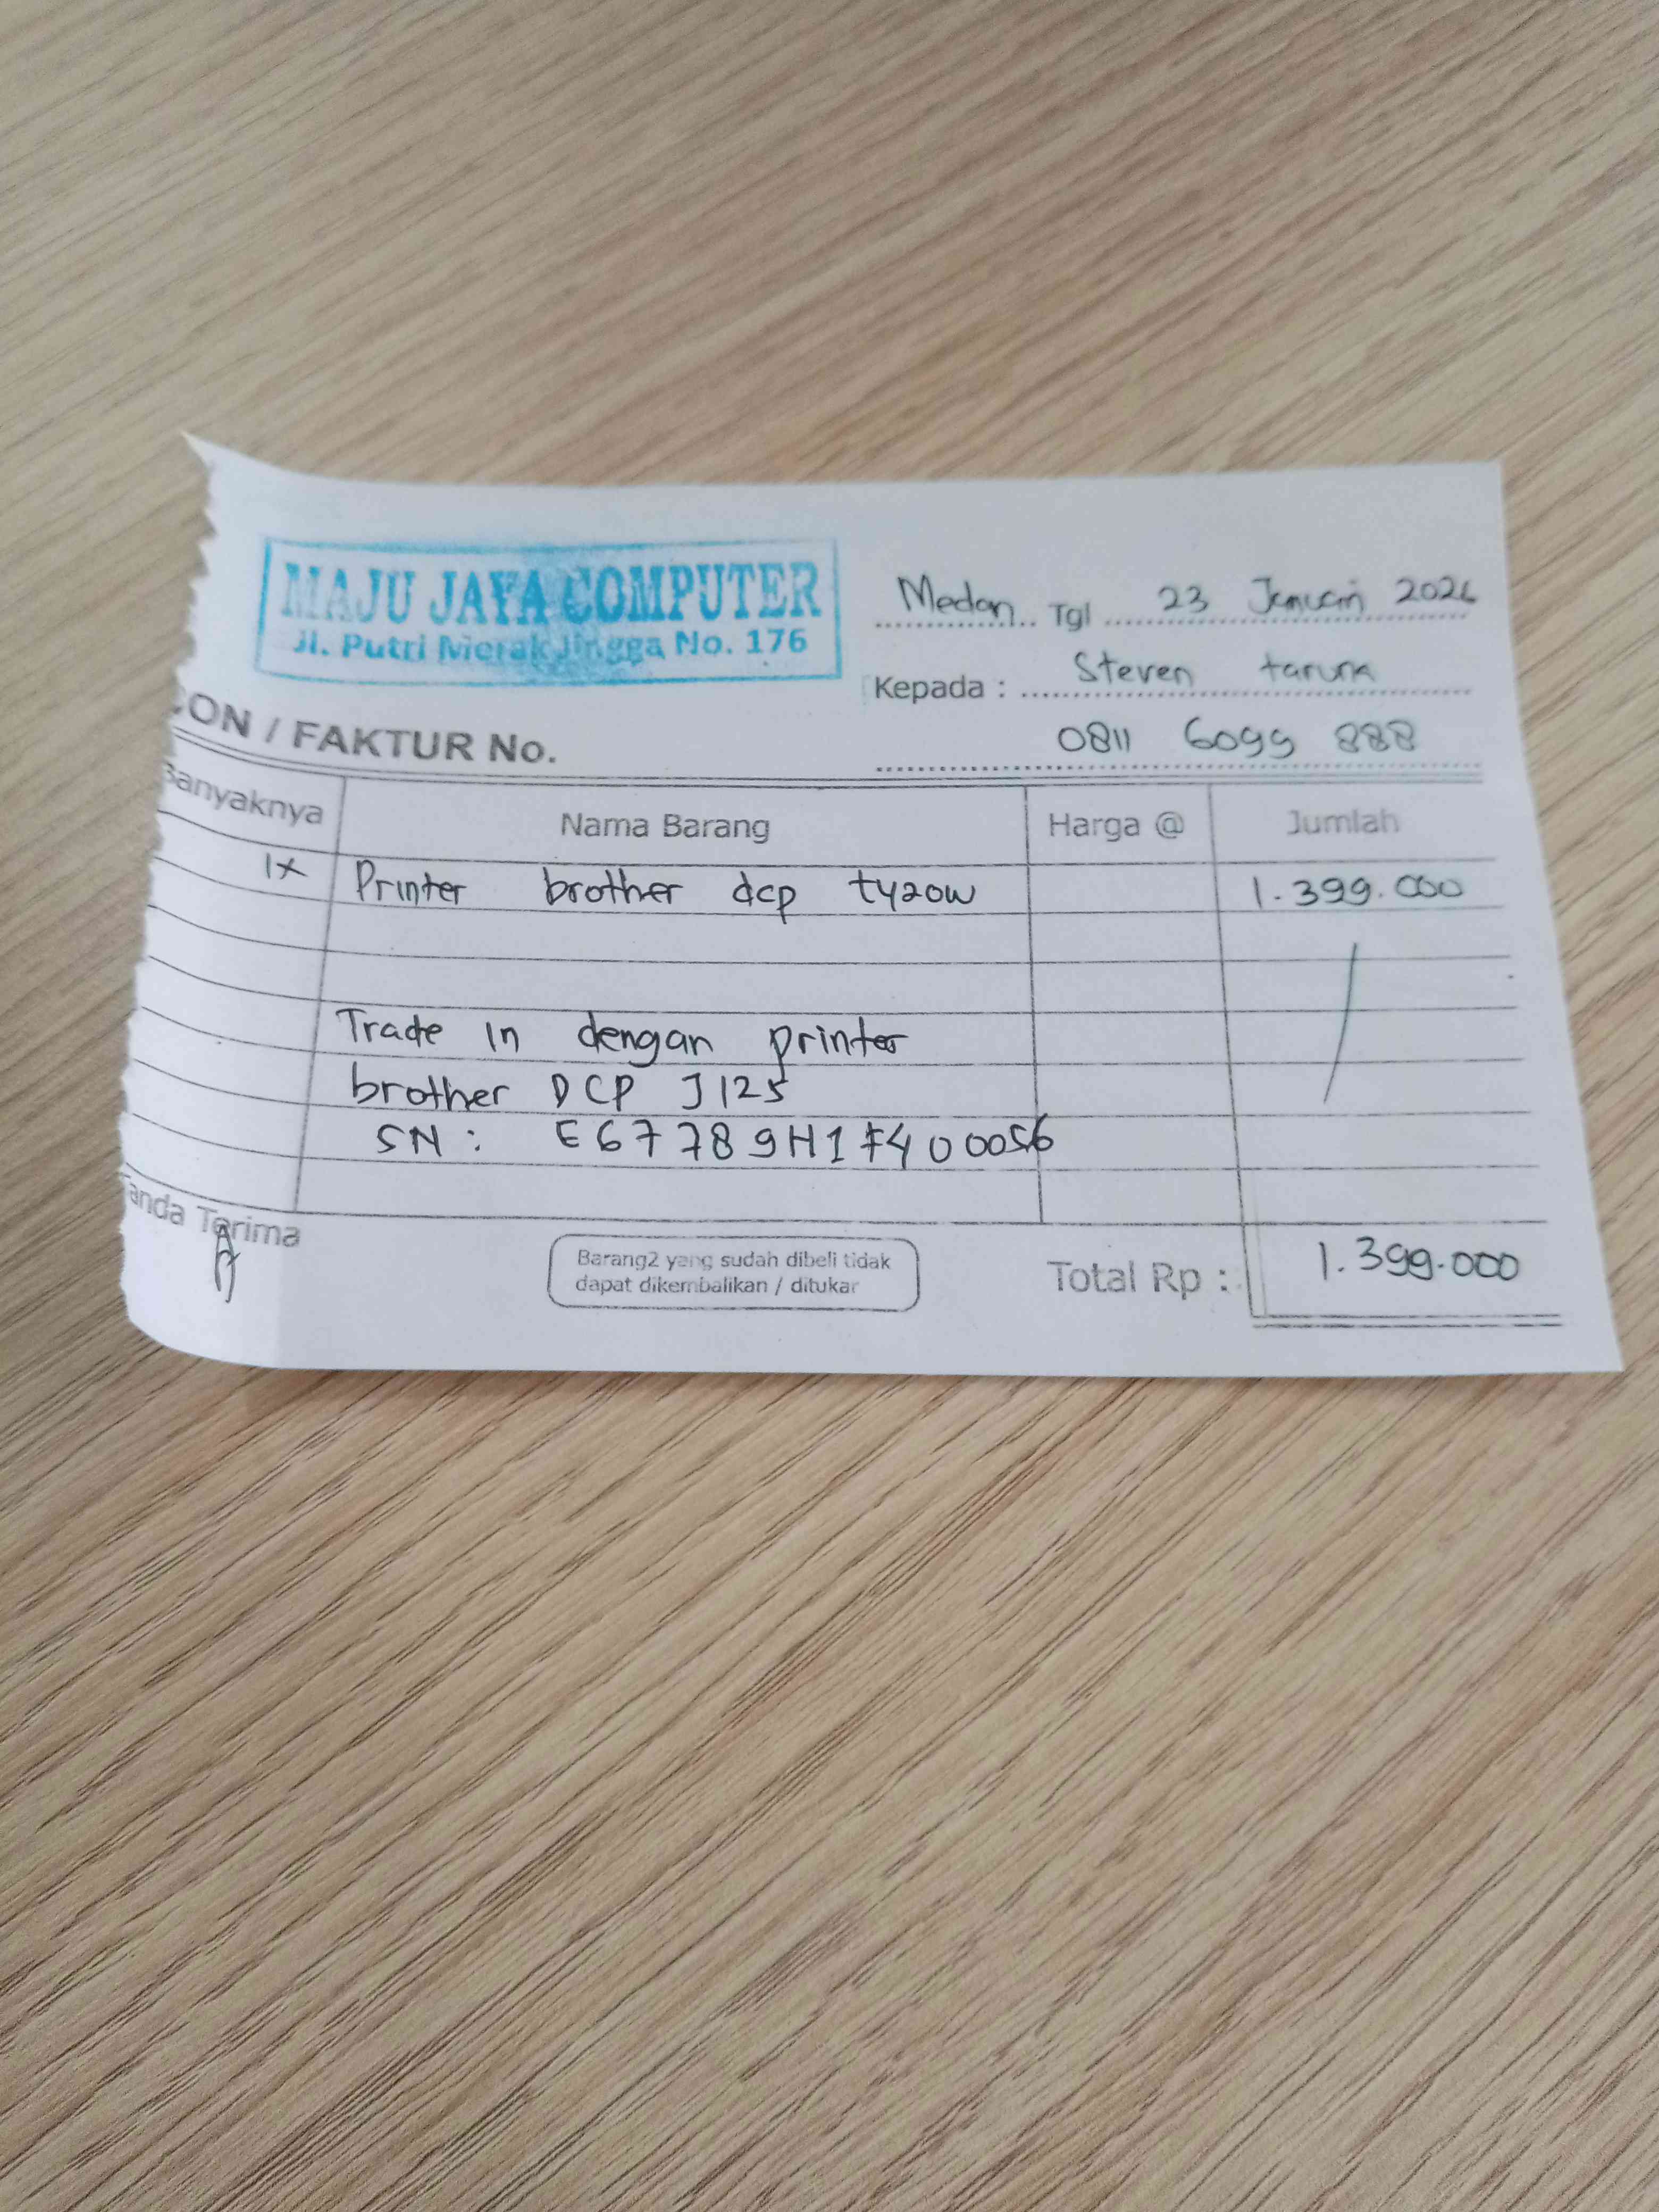 MAJU JAYA COMPUTER
Jl. Putri Merak Jingga No. 176
Medan Tgl 23 Januari 2026
Kepada : Steven taruna
0811 6099 888
CON / FAKTUR No.
Banyaknya Nama Barang Harga @ Jumlah
1x Printer brother dcp t420w 1.399.000
Trade in dengan printer
brother DCP J125
SN : E67789H1F400056
Tanda Terima
Barang2 yang sudah dibeli tidak
dapat dikembalikan / ditukar
Total Rp : 1.399.000